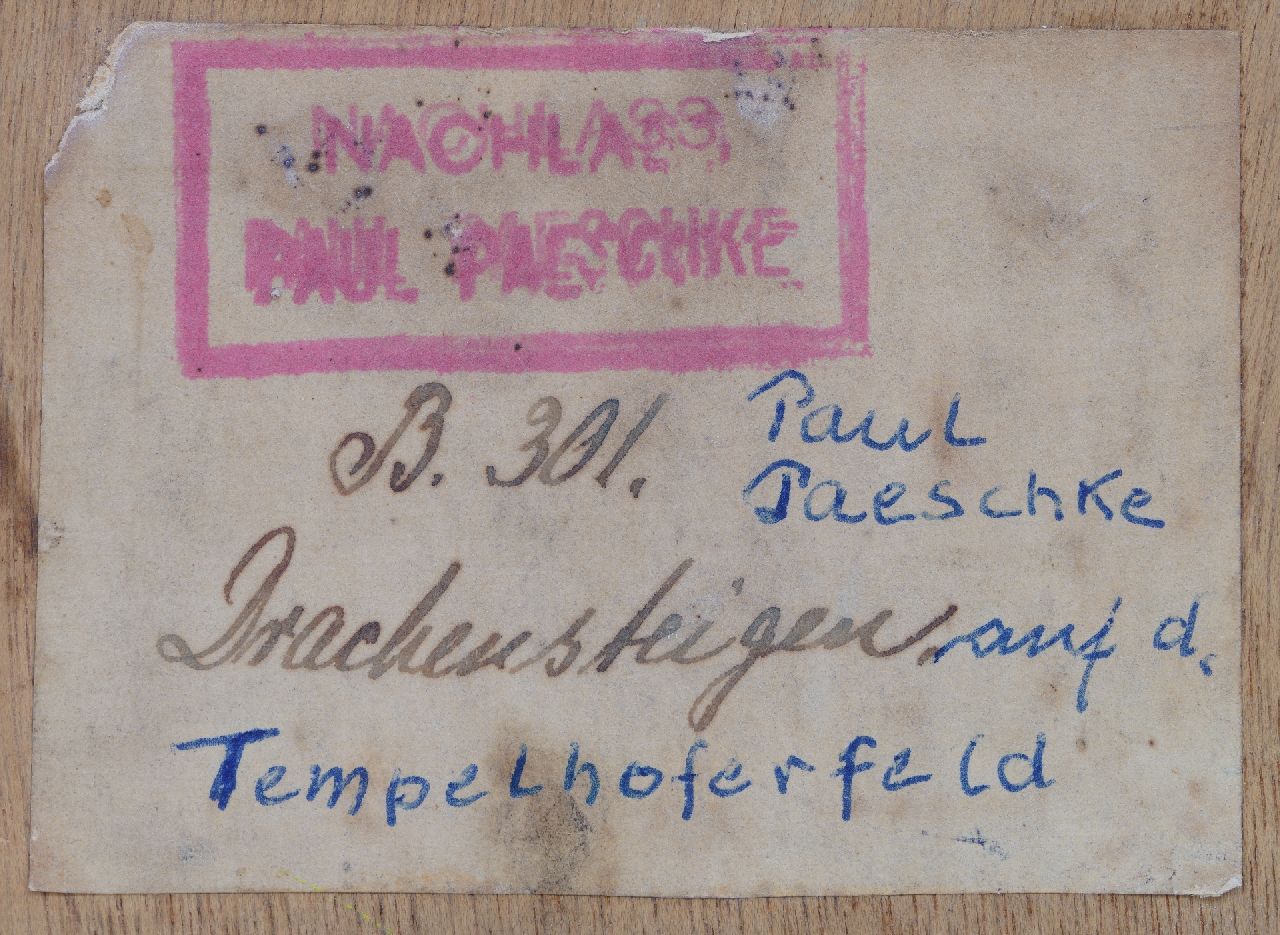 NACHLASS
PAUL PAESCHKE
B. 301. Paul
Paeschke
Drachensteigen. auf d.
Tempelhoferfeld